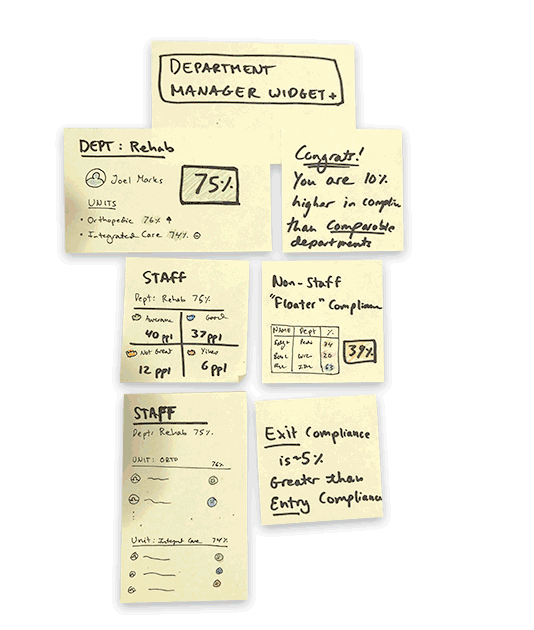 DEPARTMENT
MANAGER WIDGET+
DEPT: Rehab
Joel Marks
75%
UNITS
• Orthopedic 76%
• Integrated Care 74%
Congrats!
You are 10%
higher in complian
than comparable
departments
STAFF
Dept: Rehab 75%
Awesome
Good
40 ppl
37 ppl
Not Great
Yikes
12 ppl
6 ppl
Non-Staff
"Floater" Compliance
NAME DEPT %
39%
STAFF
Dept: Rehab 75%
UNIT: ORTO 76%
Unit: Integrat Care 74%
Exit Compliance
is ~5%
Greater than
Entry Compliance